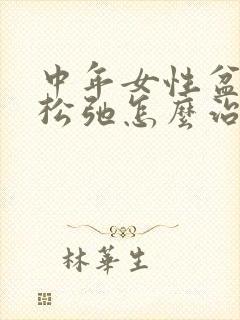 中年女性盆
松弛怎麼治
林華生